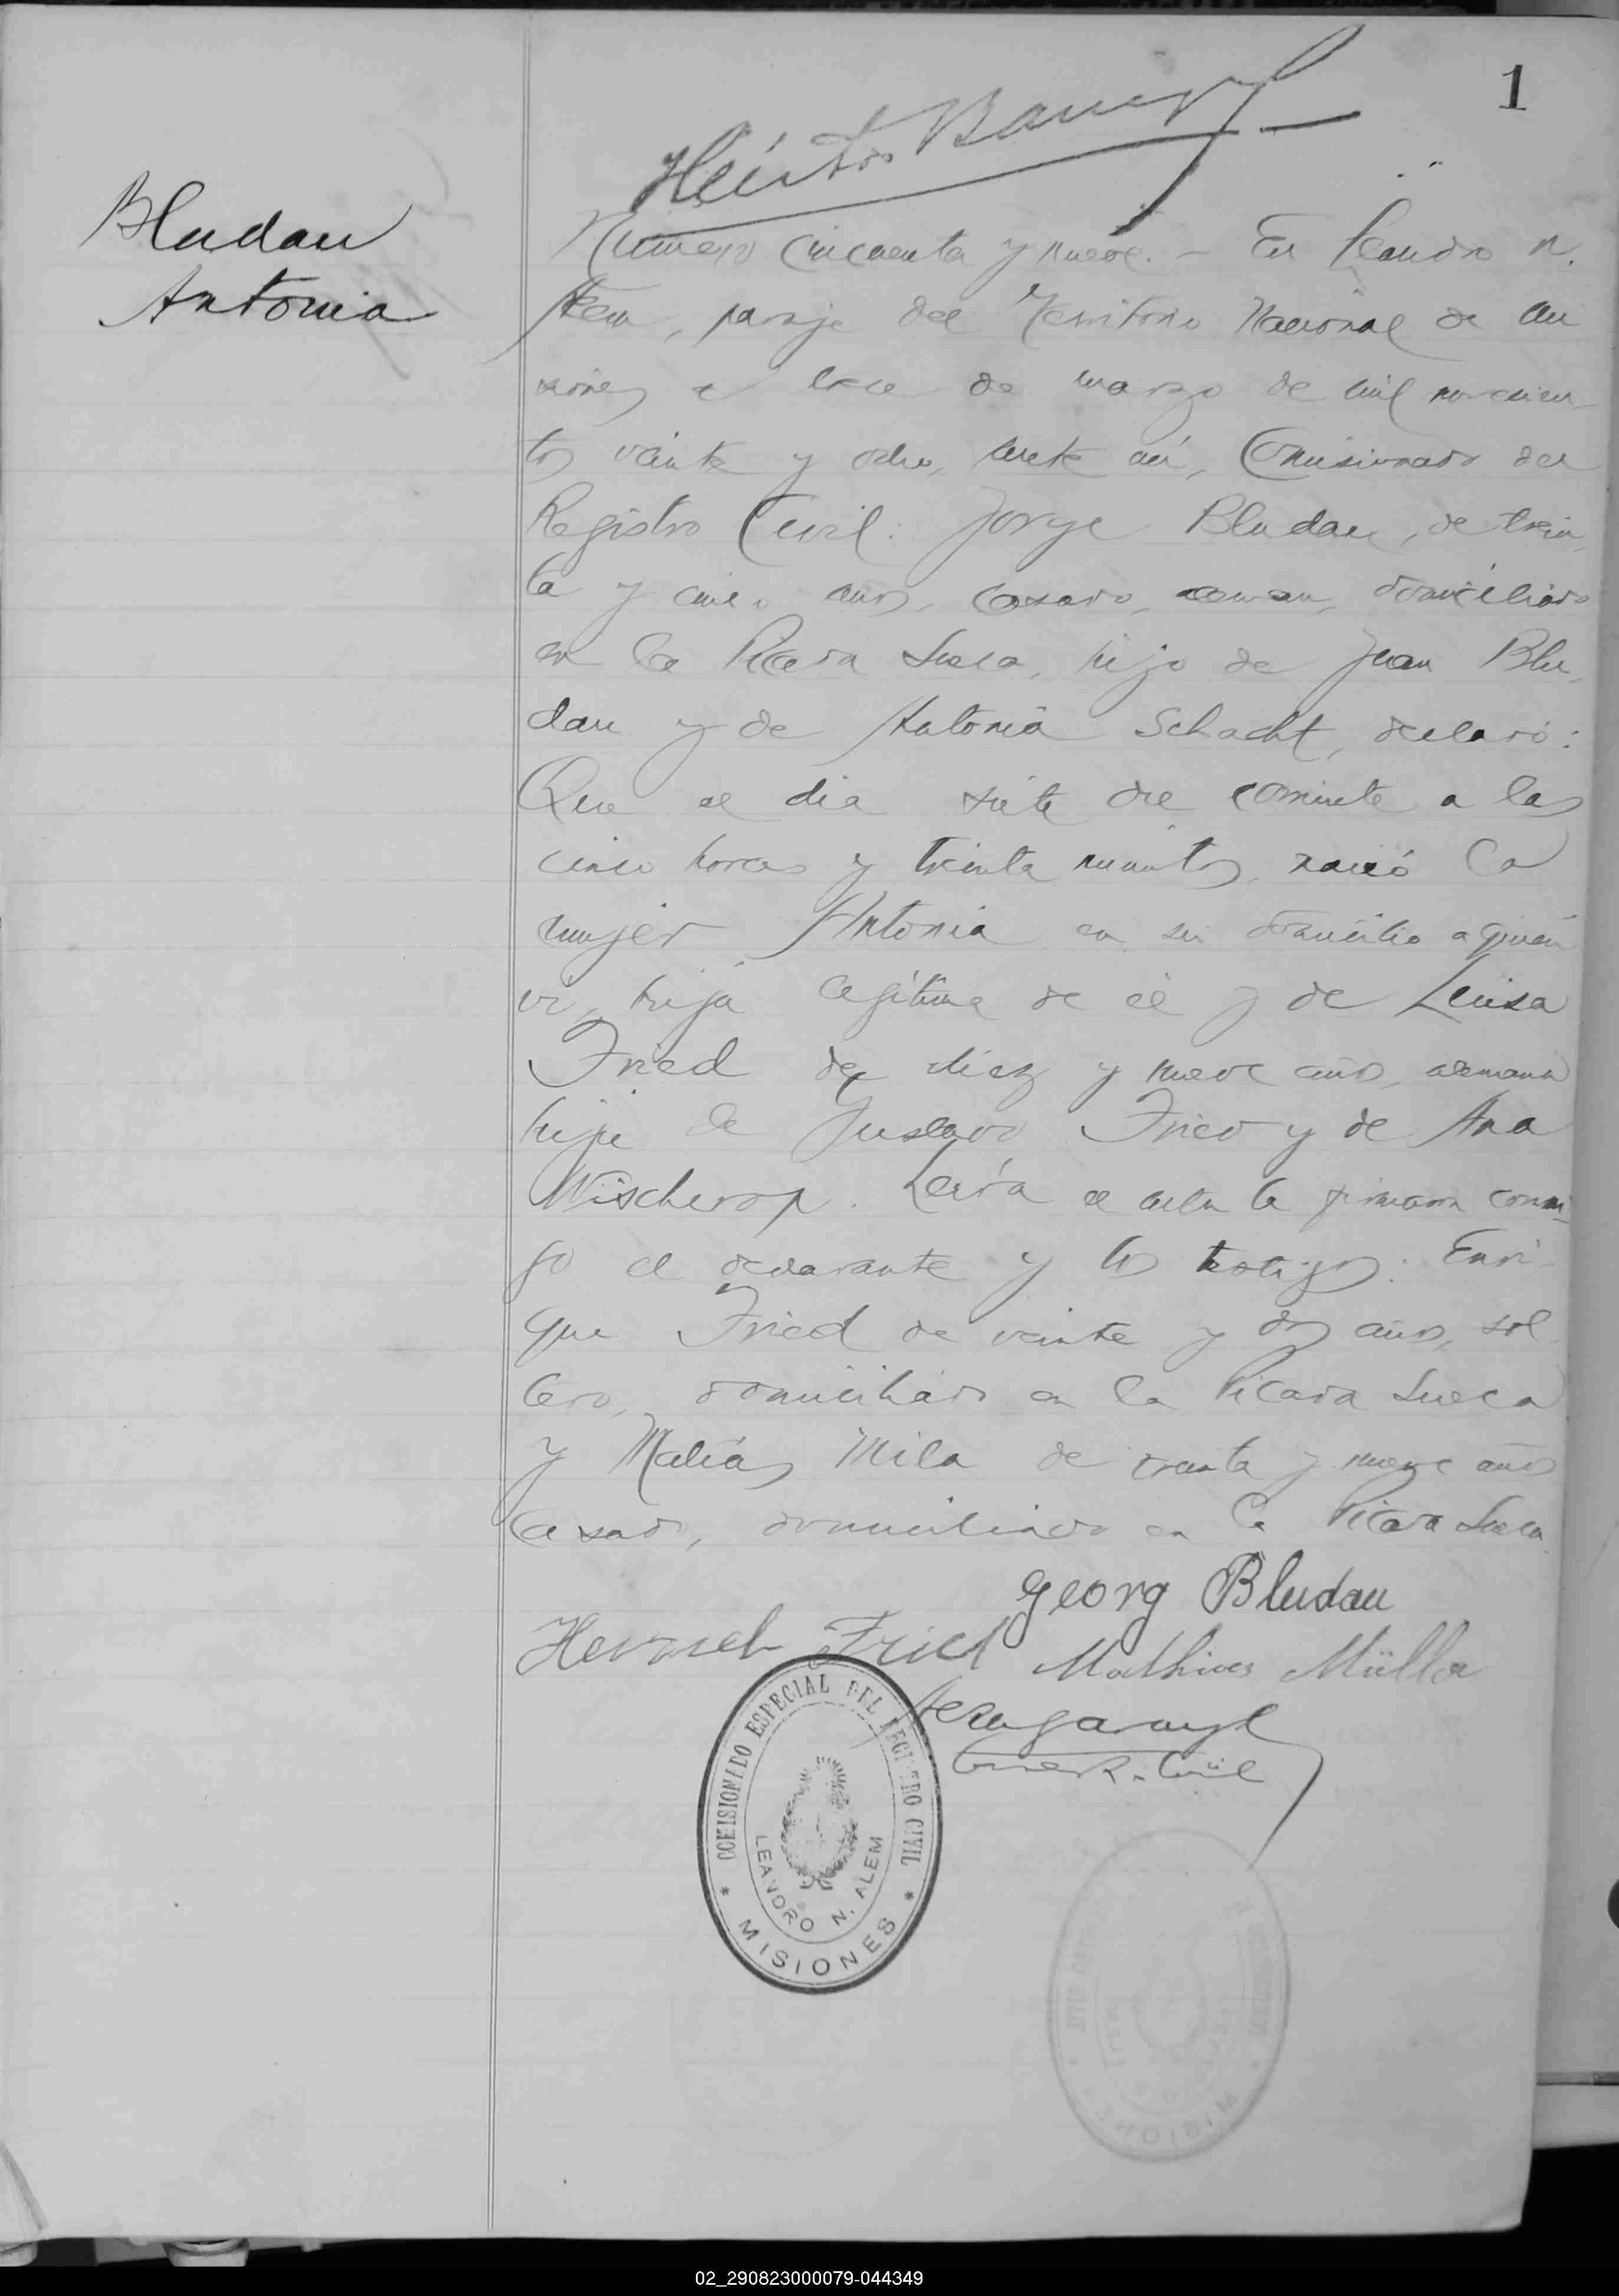 1
Héctor Barreyro
Bludau
Antonia
Número cincuenta y nueve. - En Leandro N.
Alem, paraje del Territorio Nacional de Mi
siones a trece de marzo de mil novecien
tos veinte y ocho, ante mí, Comisionado del
Registro Civil: Jorge Bludau, de trein
ta y cinco años, casado, aleman, domiciliado
en la Picada Sueca, hijo de Juan Blu
dau y de Antonia Schacht, declaró:
Que el dia siete del corriente a las
cinco horas y treinta minutos, nació la
mujer Antonia en su domicilio a quien
vi, hija legítima de él y de Luisa
Fried de diez y nueve años, alemana
hija de Gustavo Fried y de Ana
Wischerop. Leída el acta la firmaron conmi
go el declarante y los testigos: Enri
que Fried de veinte y dos años, sol
tero, domiciliado en la Picada Sueca
y Matías Mila de treinta y nueve años
casado, domiciliado en la Picada Sueca
Georg Bludau
Heinrich Fried Mathias Müller
COMISIONADO ESPECIAL DEL REGISTRO CIVIL
LEANDRO N. ALEM
* MISIONES *
MISIONES
02_290823000079-044349